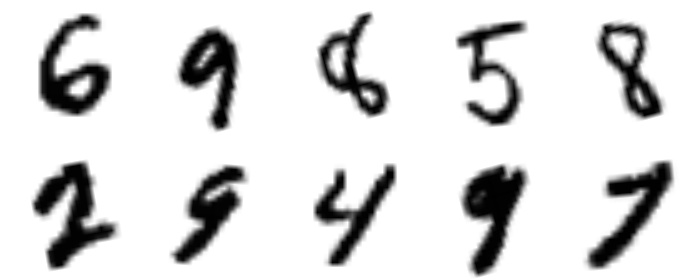 6 9 8 5 8
2 9 4 9 7